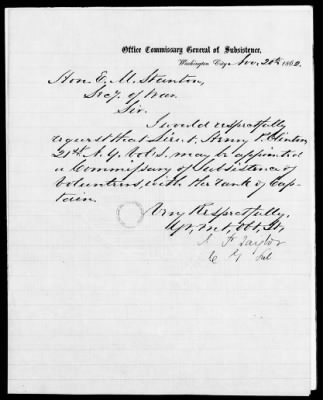 Office Commissary General of Subsistence,
Washington City, Nov. 20th 1862.
Hon. E. M. Stanton,
Secy. of War
Sir.
I would respectfully
request that Lieut. Henry P. Clinton,
21st N.Y. Vols. may be appointed
a Commissary of Subsistence of
Volunteers, with the rank of Cap-
tain.
Very Respectfully,
Yr. mt. obt. St.,
J. P. Taylor
C G Sub